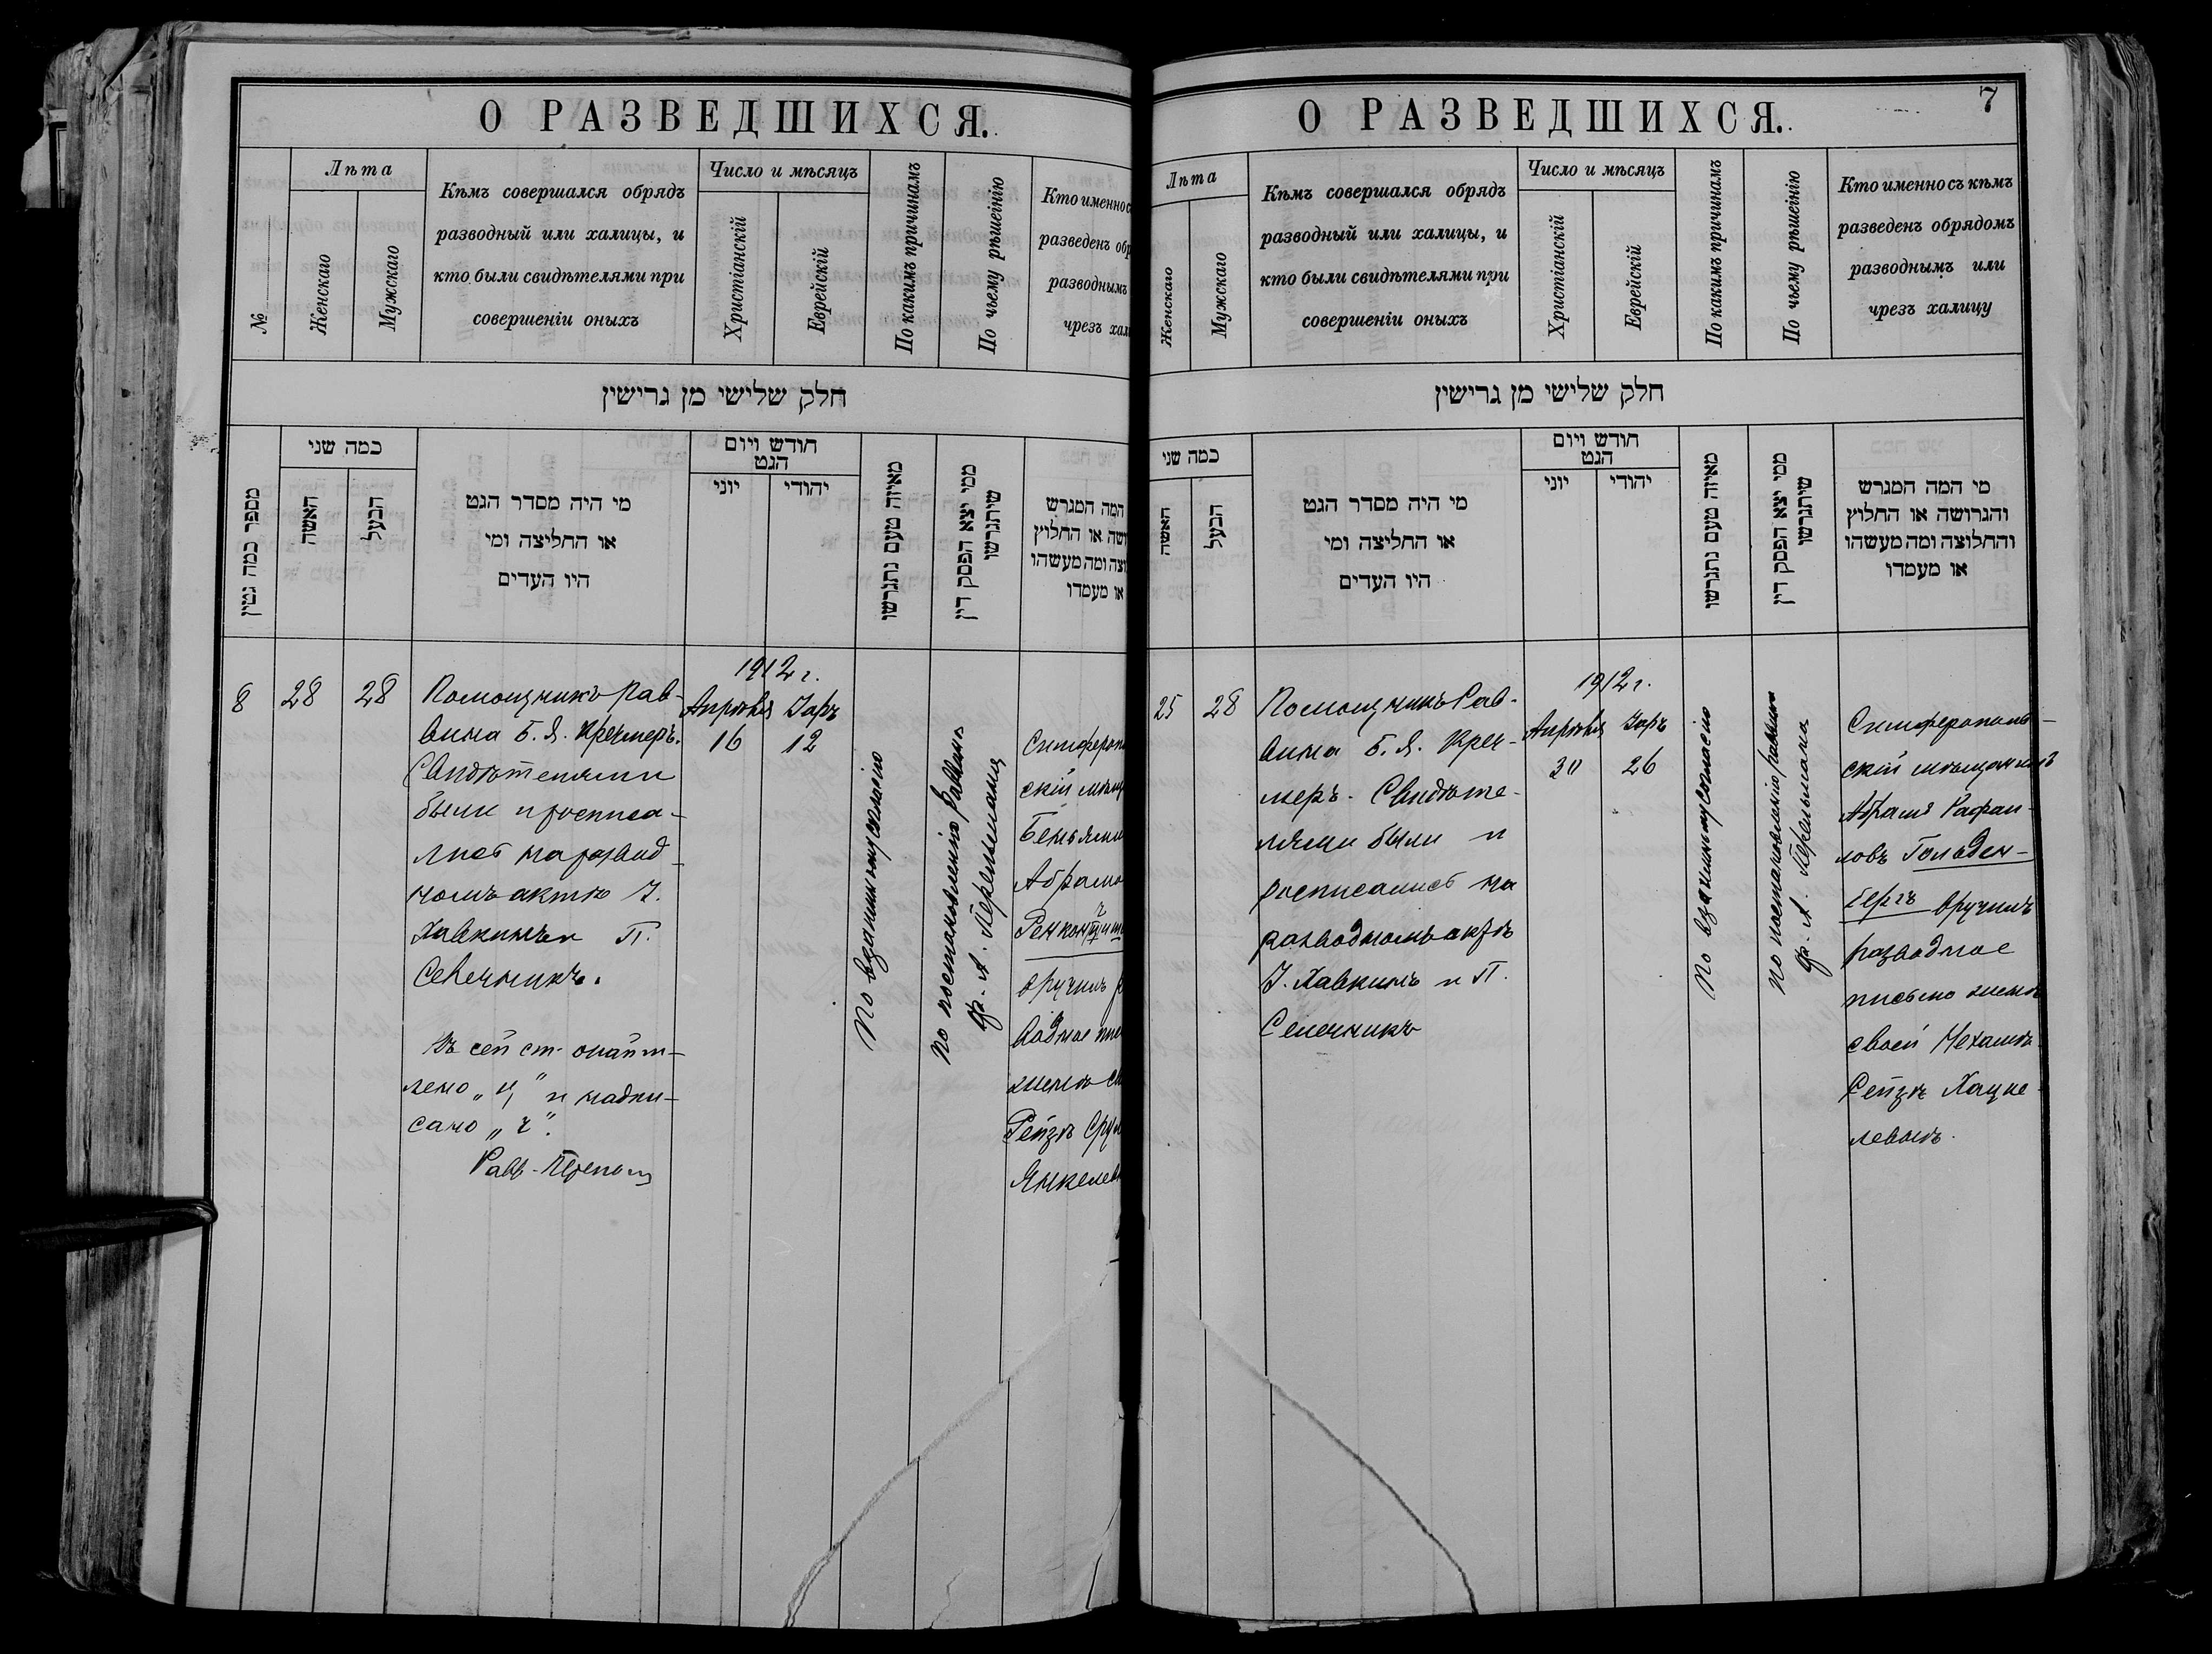 О РАЗВЕДШИХСЯ.
№
Лѣта
Женскаго
Мужскаго
Кѣмъ совершался обрядъ
разводный или халицы, и
кто были свидѣтелями при
совершеніи оныхъ
Число и мѣсяцъ
Христіанскій
Еврейскій
По какимъ причинамъ
По чьему рѣшенію
Кто именно с
разведенъ обр
разводнымъ
чрезъ хал
חלק שלישי מן גרישין
מספר כמה גטין
כמה שני
האשה
הבעל
מי היה מסדר הגט
או החליצה ומי
היו העדים
חודש ויום
הגט
יוני
יהודי
מאיזה טעם נתגרשו
ממי יצא הפסק דין
שיתגרשו
המה המגרש
ושה או החלוץ
וצה ומה מעשהו
או מעמדו
8
28
28
Помощникъ Рав-
вина Б. Я. Кречмеръ.
Свидѣтелями
были и росписа-
лись на развод-
номъ актѣ І.
Хавкинъ и П.
Сенечникъ.
Въ сей ст.
лено „ц" и надпи-
сано „ч".
Равв.
1912 г.
Апрѣля Іаръ
16 12
По взаимному согласію
По постановленію раввина
Ф. А. Перельмана
Симфероп
скій мѣщ
Беньями
Абрамо
вручилъ р
водное пис
женѣ св
Рейзѣ Срул
Янкелев
О РАЗВЕДШИХСЯ.
7
Лѣта
Женскаго
Мужскаго
Кѣмъ совершался обрядъ
разводный или халицы, и
кто были свидѣтелями при
совершеніи оныхъ
Число и мѣсяцъ
Христіанскій
Еврейскій
По какимъ причинамъ
По чьему рѣшенію
Кто именно съ кѣмъ
разведенъ обрядомъ
разводнымъ или
чрезъ халицу
חלק שלישי מן גרישין
כמה שני
האשה
הבעל
מי היה מסדר הגט
או החליצה ומי
היו העדים
חודש ויום
הגט
יוני
יהודי
מאיזה טעם נתגרשו
ממי יצא הפסק דין
שיתגרשו
מי המה המגרש
והגרושה או החלוץ
והחלוצה ומה מעשהו
או מעמדו
25
28
Помощникъ Рав-
вина Б. Я. Креч-
меръ. Свидѣте-
лями были и
росписались на
разводномъ актѣ
І. Хавкинъ и П.
Сенечникъ
1912 г.
Апрѣля Іаръ
30 26
По взаимному согласію
По постановленію раввина
Ф. А. Перельмана
Симферополь-
скій мѣщанинъ
Абрамъ Рафаи-
ловъ Гольден-
бергъ вручилъ
разводное
письмо женѣ
своей Нехамѣ
Рейзѣ Хацке-
левой.